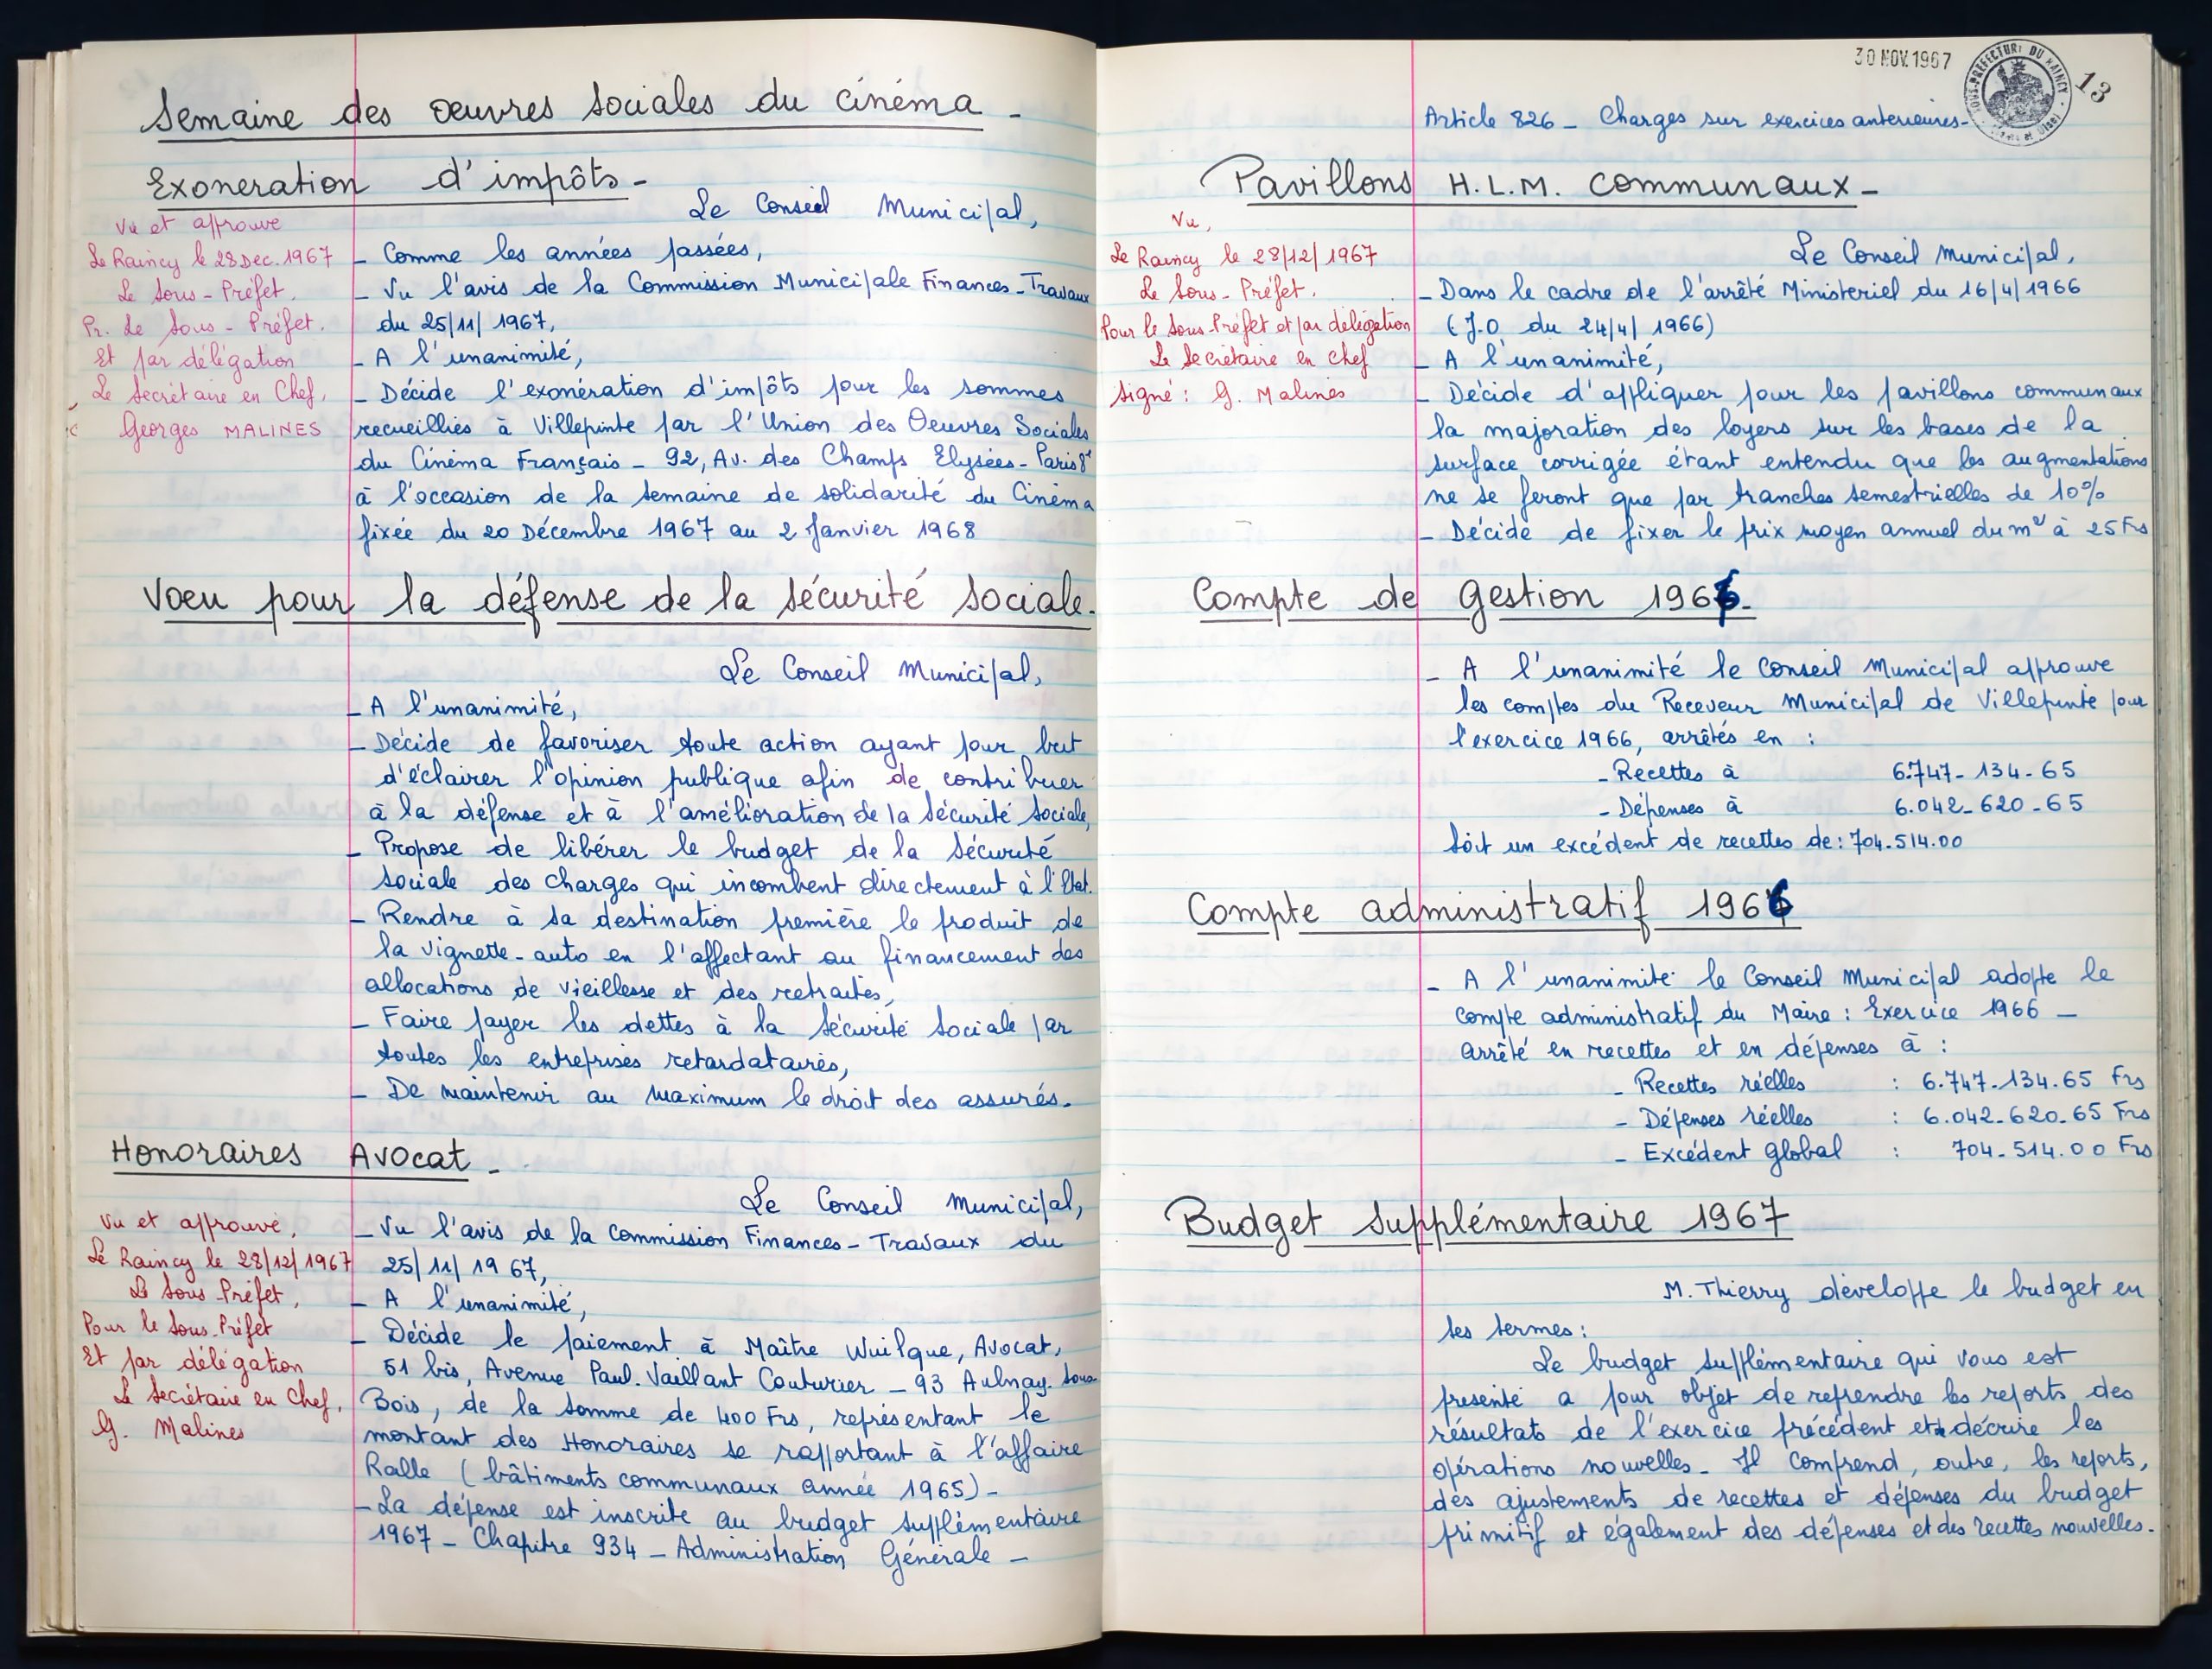 Semaine des oeuvres sociales du cinéma -
Exoneration d'impôts -
Vu et approuve
Le Raincy le 28 Dec. 1967
Le Sous-Préfet.
Pr. Le Sous-Préfet.
Et par délégation
Le Secrétaire en Chef,
Georges MALINES
Le Conseil Municipal,
- Comme les années passées,
- Vu l'avis de la Commission Municipale Finances-Travaux
du 25/11/1967,
- A l'unanimité,
- Décide l'exonération d'impôts pour les sommes
recueillies à Villepinte par l'Union des Oeuvres Sociales
du Cinéma Français - 92, Av. des Champs Elysées - Paris 8e
à l'occasion de la semaine de solidarité du Cinéma
fixée du 20 Décembre 1967 au 2 Janvier 1968
Voeu pour la défense de la Sécurité Sociale.
Le Conseil Municipal,
- A l'unanimité,
- Décide de favoriser toute action ayant pour but
d'éclairer l'opinion publique afin de contribuer
à la défense et à l'amélioration de la Sécurité Sociale,
- Propose de libérer le budget de la Sécurité
Sociale des charges qui incombent directement à l'Etat.
- Rendre à sa destination première le produit de
la vignette-auto en l'affectant au financement des
allocations de vieillesse et des retraites,
- Faire payer les dettes à la Sécurité Sociale par
toutes les entreprises retardataires,
- De maintenir au maximum le droit des assurés.
Honoraires Avocat -
Vu et approuvé,
Le Raincy le 28/12/1967
Le Sous Préfet,
Pour le Sous-Préfet
Et par délégation
Le Secrétaire en Chef,
G. Malines
Le Conseil Municipal,
- Vu l'avis de la Commission Finances-Travaux du
25/11/1967,
- A l'unanimité,
- Décide le paiement à Maître Wuilque, Avocat,
51 bis, Avenue Paul. Vaillant Couturier - 93 Aulnay. Sous-
Bois, de la somme de 400 Frs, représentant le
montant des Honoraires se rapportant à l'affaire
Ralle (bâtiments communaux année 1965) -
- La dépense est inscrite au budget supplémentaire
1967 - Chapitre 934 - Administration Générale -
30 NOV. 1967
SOUS-PREFECTURE DU RAINCY
13
Article 826 - Charges sur exercices anterieures -
Pavillons H.L.M. Communaux -
Vu,
Le Raincy le 28/12/1967
Le Sous-Préfet.
Pour le Sous-Préfet et par délégation
Le Secrétaire en Chef
Signé : G. Malines
Le Conseil Municipal,
- Dans le cadre de l'arrêté Ministeriel du 16/4/1966
(J.O du 24/4/1966)
- A l'unanimité,
- Décide d'appliquer pour les pavillons communaux
la majoration des loyers sur les bases de la
surface corrigée étant entendu que les augmentations
ne se feront que par tranches semestrielles de 10%
- Décide de fixer le prix moyen annuel du m2 à 25 Frs
Compte de gestion 1966 -
- A l'unanimité le Conseil Municipal approuve
les comptes du Receveur Municipal de Villepinte pour
l'exercice 1966, arrêtés en :
- Recettes à 6.747-134-65
- Dépenses à 6.042-620-65
Soit un excédent de recettes de : 704.514.00
Compte administratif 1966
- A l'unanimité le Conseil Municipal adopte le
compte administratif du Maire : Exercice 1966 -
arrêté en recettes et en dépenses à :
- Recettes réelles : 6.747-134.65 Frs
- Dépenses réelles : 6.042-620-65 Frs
- Excédent global : 704-514.00 Frs
Budget Supplémentaire 1967
M. Thierry développe le budget en
ses termes :
Le budget supplémentaire qui vous est
présenté a pour objet de reprendre les reports des
résultats de l'exercice précédent et décrire les
opérations nouvelles. Il comprend, outre, les reports,
des ajustements de recettes et dépenses du budget
primitif et également des dépenses et des recettes nouvelles.